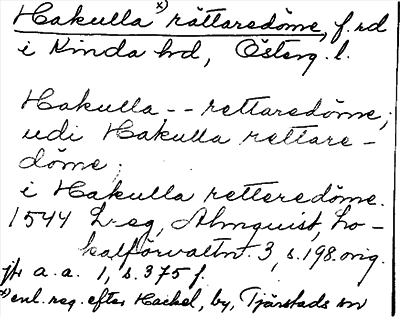 Hakulla x) rättaredöme, f.rd
i Kinda hd, Österg. l.
Hakulla -- rettaredöme;
udi Hakulla rettare-
döme;
i Hakulla retteredöme.
1544 L-eg, Almquist, Lo-
kalförvaltn. 3, s. 198. orig.
jfr a. a. 1, s. 375 f.
x) enl. reg. efter Hackel, by, Tjärstads sn